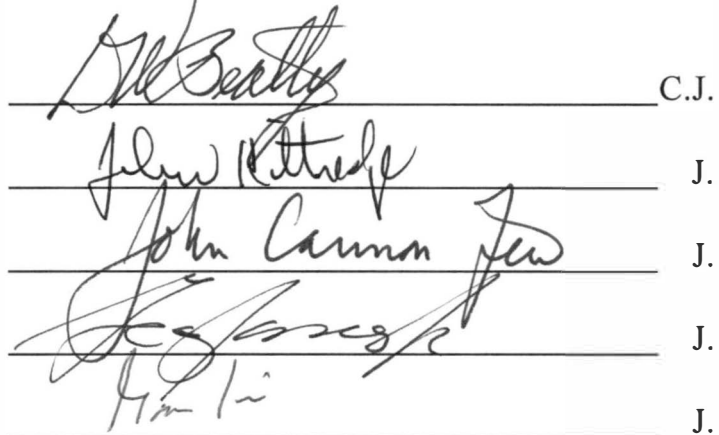 Beatty C.J.
John Kittredge J.
John Cannon Few J.
J.
J.